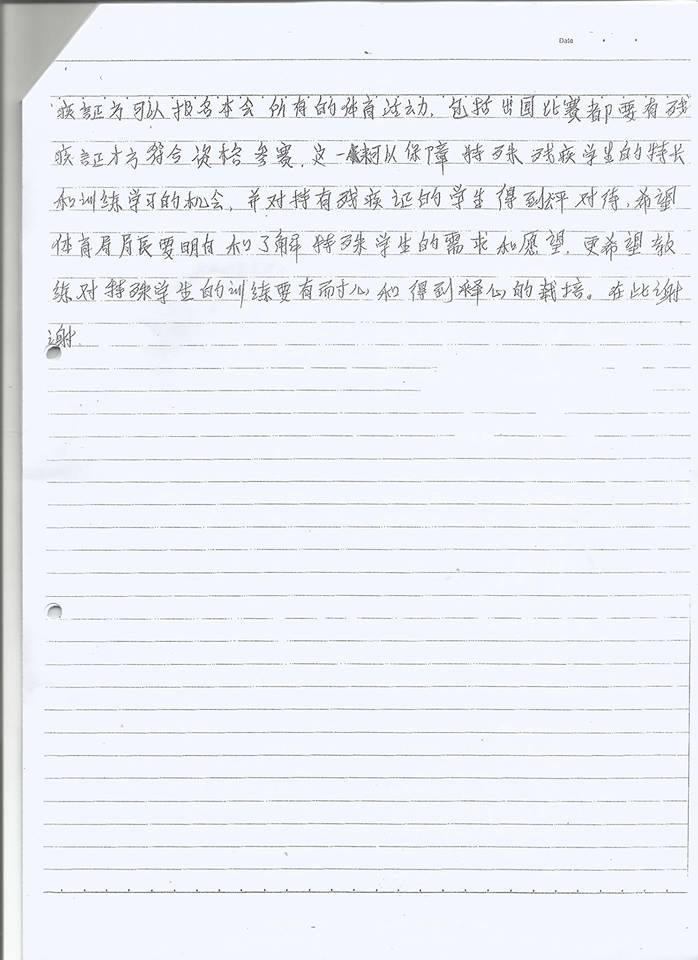 Date
疾証方可以报名本会所有的体育活动,包括出国比赛都要有残
疾証才方符合资格参赛,这一来可以保障特殊残疾学生的特长
和训练学习的机会,并对持有残疾证的学生得到评对待,希望
体育局局长要明白和了解特殊学生的需求和愿望,更希望教
练对特殊学生的训练要有耐心和得到释心的栽培。在此谢
谢.